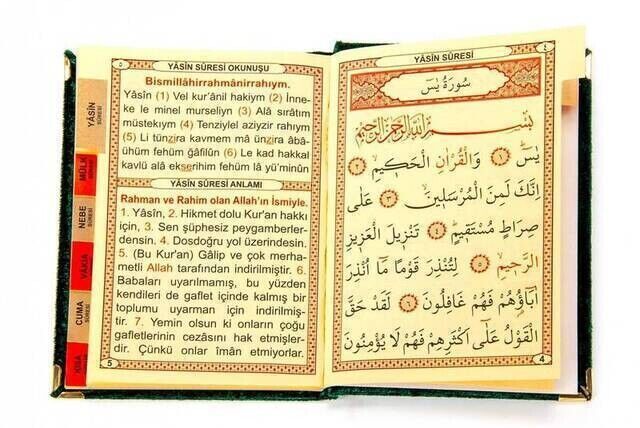 ٥
YÂSÎN SÛRESİ OKUNUŞU
Bismillâhirrahmânirrahıym.
Yâsîn (1) Vel kur'ânil hakiym (2) İnne-
ke le minel murseliyn (3) Alâ sırâtım
müstekıym (4) Tenziylel aziyzir rahıym
(5) Li tünzira kavmem mâ ünzira âbâ-
ühüm fehüm ğâfilûn (6) Le kad hakkal
kavlü alâ ekserihim fehüm lâ yü'minûn
YÂSÎN SÛRESİ ANLAMI
Rahman ve Rahim olan Allah'ın İsmiyle.
1. Yâsîn, 2. Hikmet dolu Kur'an hakkı
için, 3. Sen şüphesiz peygamberler-
densin. 4. Dosdoğru yol üzerindesin.
5. (Bu Kur'an) Gâlip ve çok merha-
metli Allah tarafından indirilmiştir. 6.
Babaları uyarılmamış, bu yüzden
kendileri de gaflet içinde kalmış bir
toplumu uyarman için indirilmiş-
tir. 7. Yemin olsun ki onların çoğu
gafletlerinin cezasını hak etmişler-
dir. Çünkü onlar îmân etmiyorlar.
5
YÂSİN SÛRESİ
MÜLK SÛRESİ
NEBE SÛRESİ
VÂKIA SÛRESİ
CUMA SÛRESİ
KISA
YÂSÎN SÛRESİ
٤
سُورَةُ يٰسٓ
بِسْمِ اللّٰهِ الرَّحْمٰنِ الرَّحِيمِ
يٰسٓ ﴿١﴾ وَالْقُرْاٰنِ الْحَكِيمِ ﴿٢﴾
اِنَّكَ لَمِنَ الْمُرْسَلِينَ ﴿٣﴾ عَلٰى
صِرَاطٍ مُسْتَقِيمٍ ﴿٤﴾ تَنْزِيلَ الْعَزِيزِ
الرَّحِيمِ ﴿٥﴾ لِتُنْذِرَ قَوْمًا مَٓا اُنْذِرَ
اٰبَٓاؤُ۬هُمْ فَهُمْ غَافِلُونَ ﴿٦﴾ لَقَدْ حَقَّ
الْقَوْلُ عَلٰٓى اَكْثَرِهِمْ فَهُمْ لَا يُؤْمِنُونَ
4